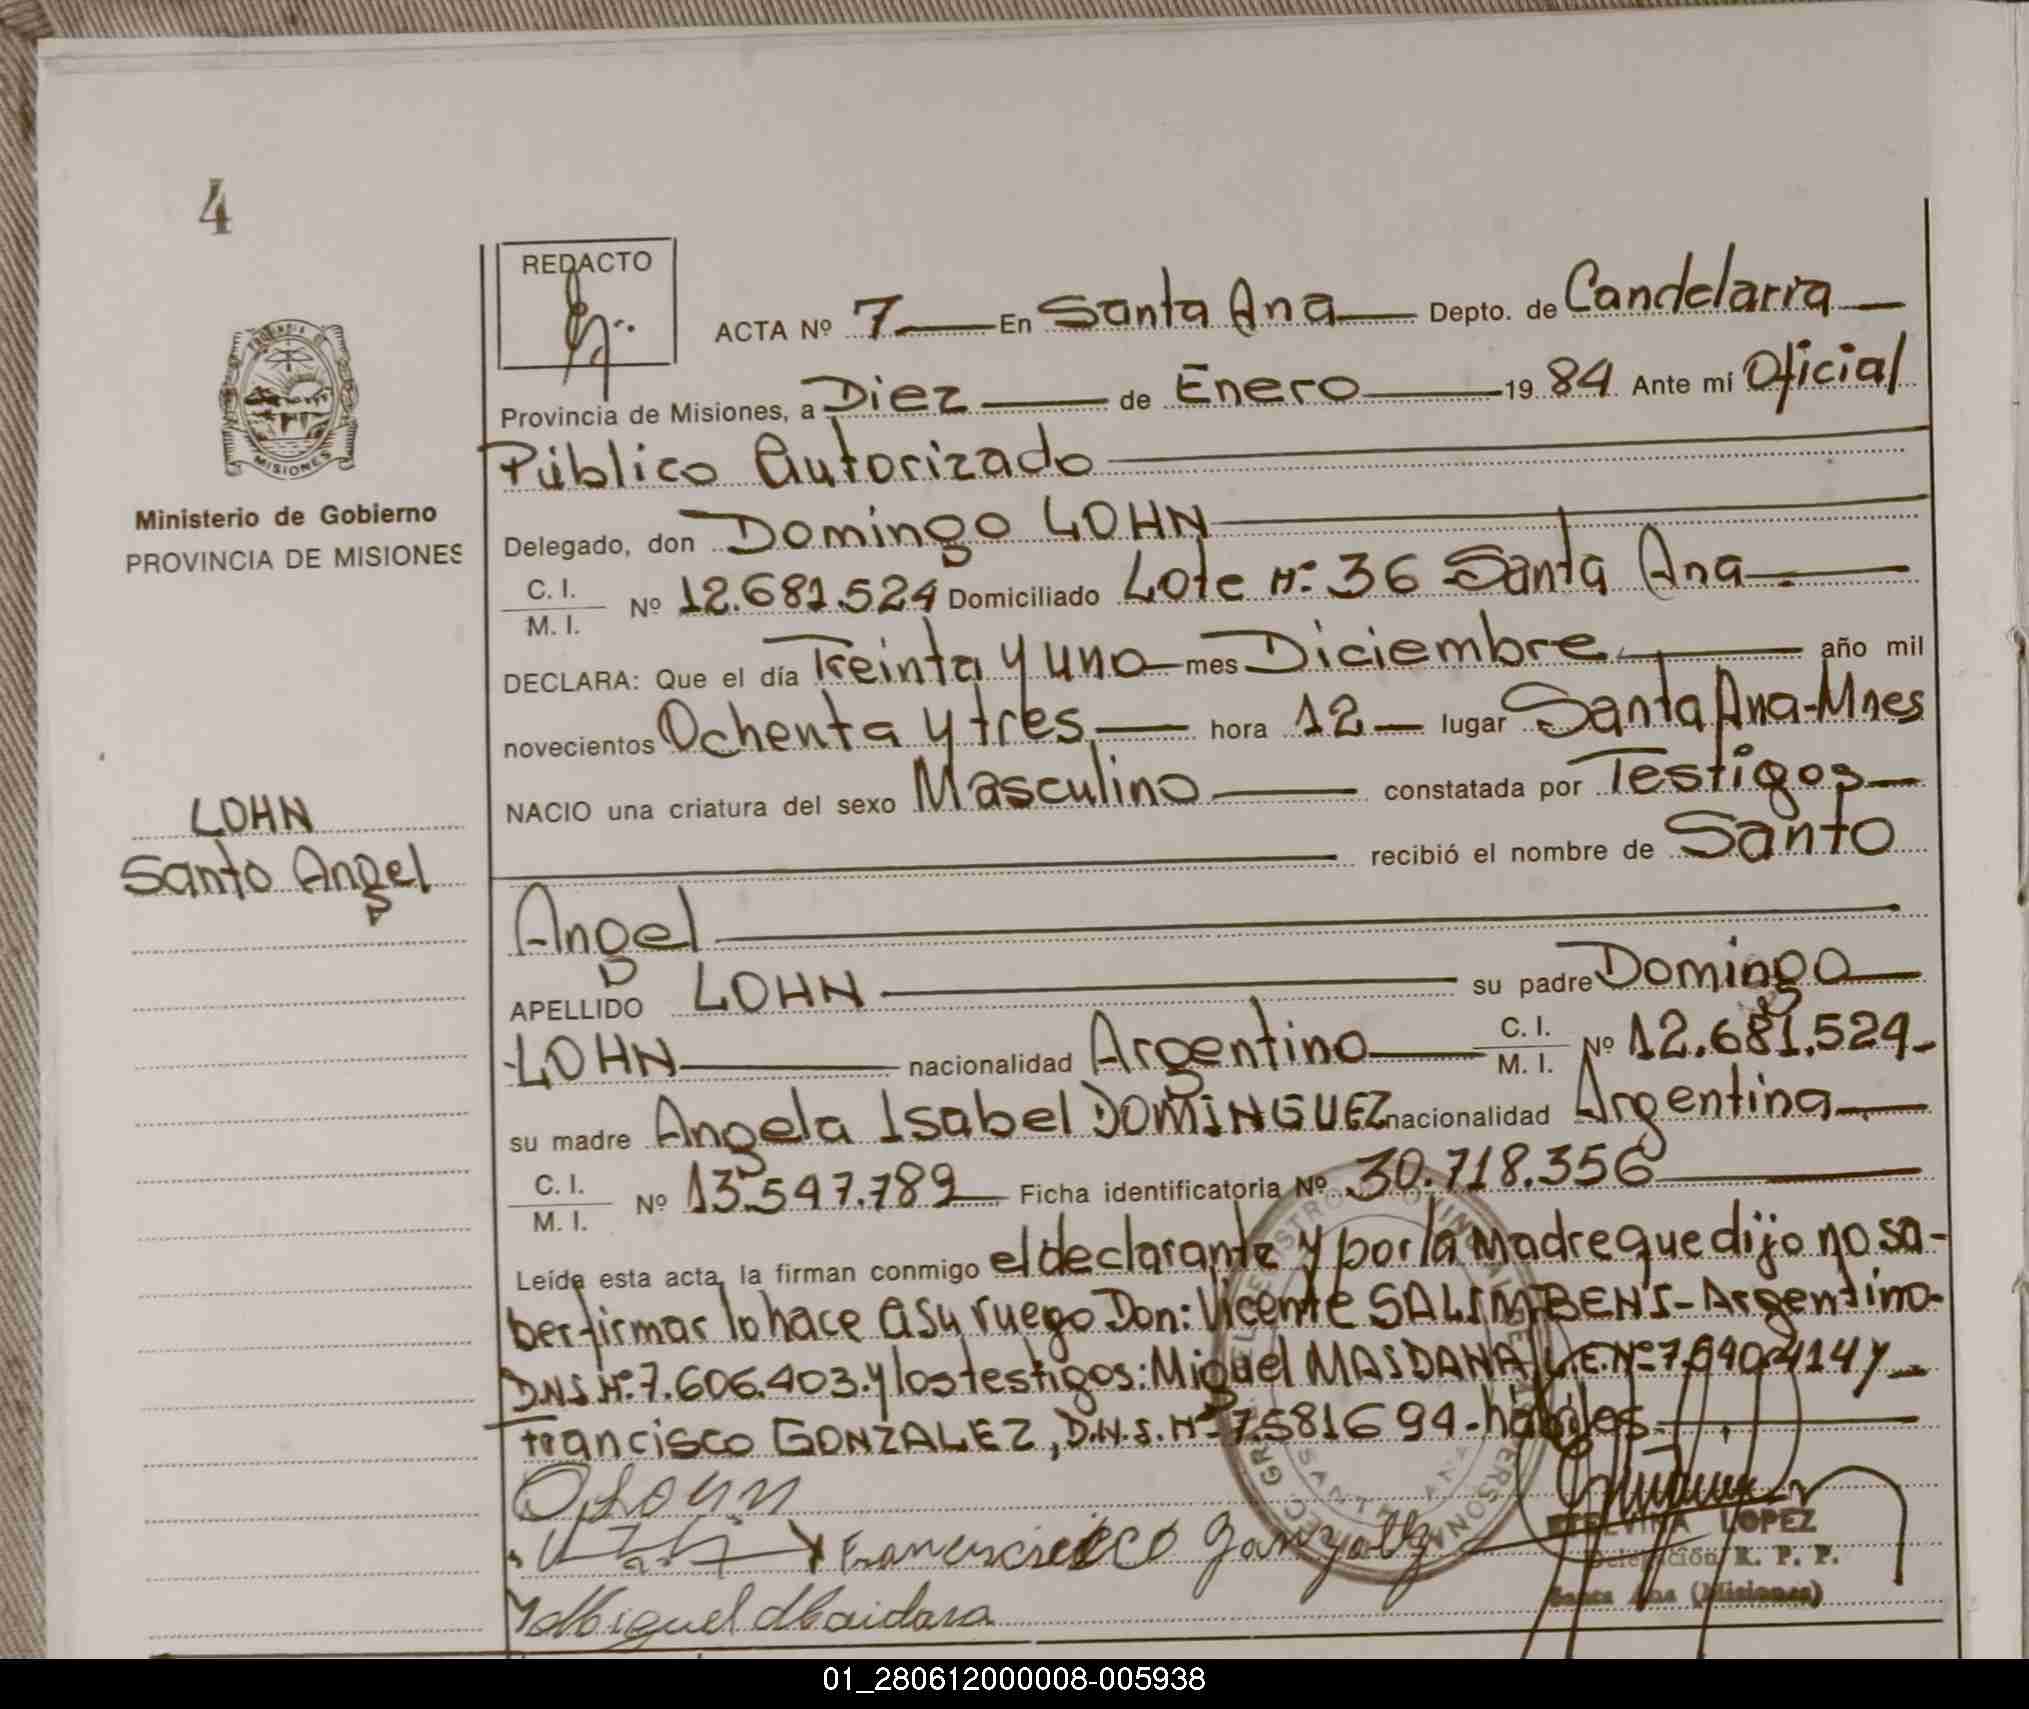 4
REDACTO
ACTA Nº 7 En Santa Ana Depto. de Candelaria
Provincia de Misiones, a Diez de Enero 19 84 Ante mí Oficial
Público Autorizado
MISIONES
Ministerio de Gobierno
PROVINCIA DE MISIONES
Delegado, don Domingo LOHN
C. I.
M. I. Nº 12.681.524 Domiciliado Lote Nº 36 Santa Ana
DECLARA: Que el día Treinta y uno mes Diciembre año mil
novecientos Ochenta y tres hora 12 lugar Santa Ana-Mnes
NACIO una criatura del sexo Masculino constatada por Testigos
LOHN
Santo Angel
recibió el nombre de Santo
Angel
APELLIDO LOHN su padre Domingo
LOHN nacionalidad Argentino C. I. M. I. Nº 12.681.524-
su madre Angela Isabel DOMINGUEZ nacionalidad Argentina
C. I.
M. I. Nº 13.547.789 Ficha identificatoria Nº 30.718.356
Leída esta acta, la firman conmigo el declarante y por la Madre que dijo no sa-
ber firmar lo hace a su ruego Don: Vicente SALIMBENI- Argentino-
D.N.I. Nº 7.606.403. y los testigos: Miguel MAIDANA, L.E. Nº 7. y
Francisco GONZALEZ, D.N.I. Nº 7.581694- hábiles
D. Lohn
Miguel Maidana
ETELVINA LOPEZ
Delegación R. P. P.
Santa Ana (Misiones)
01_280612000008-005938